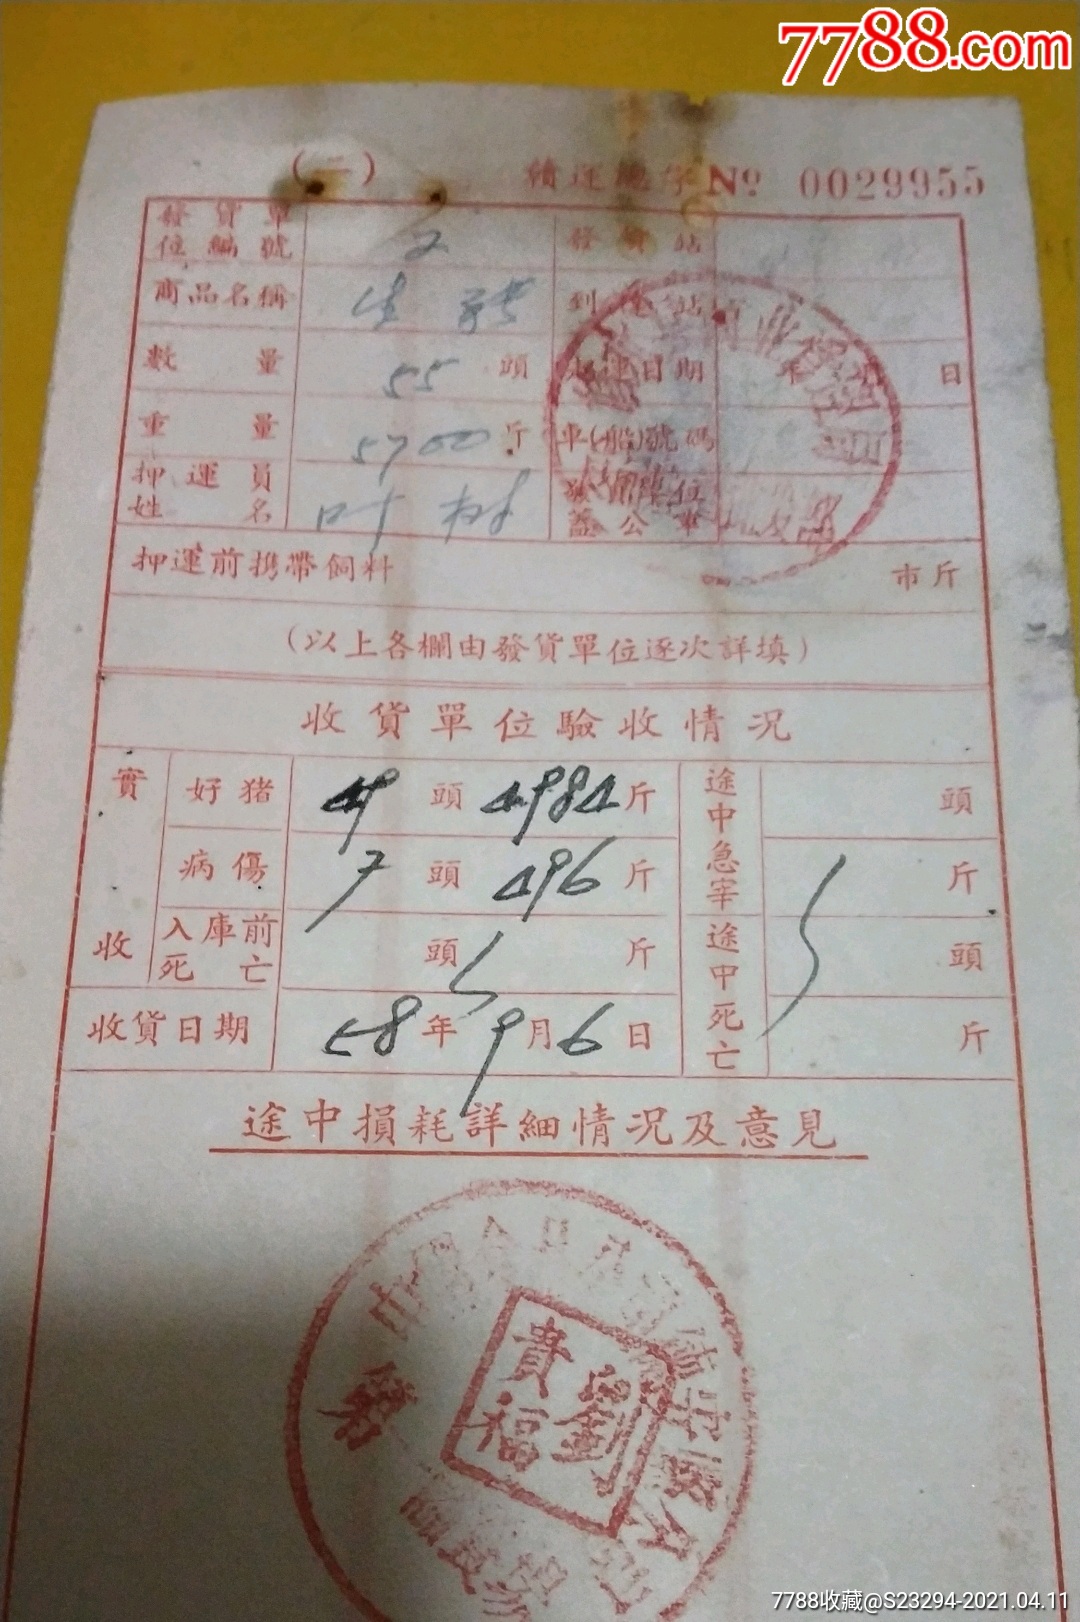 7788.com
(二) 贛運總字 No 0029955
發貨單位編號 2 發貨站
商品名稱 生豬 到達站
數量 55 頭 起運日期 年 月 日
重量 5700 斤 車(船)號碼
押運員姓名 叶树 發貨單位蓋公章
押運前携帶飼料 市斤
(以上各欄由發貨單位逐次詳填)
收貨單位驗收情況
實收 好猪 49 頭 4984 斤 途中急宰 頭
病傷 7 頭 496 斤 斤
入庫前死亡 頭 斤 途中死亡 頭
收貨日期 58 年 9 月 6 日 斤
途中損耗詳細情況及意見
劉貴福
第
7788收藏@S23294-2021.04.11